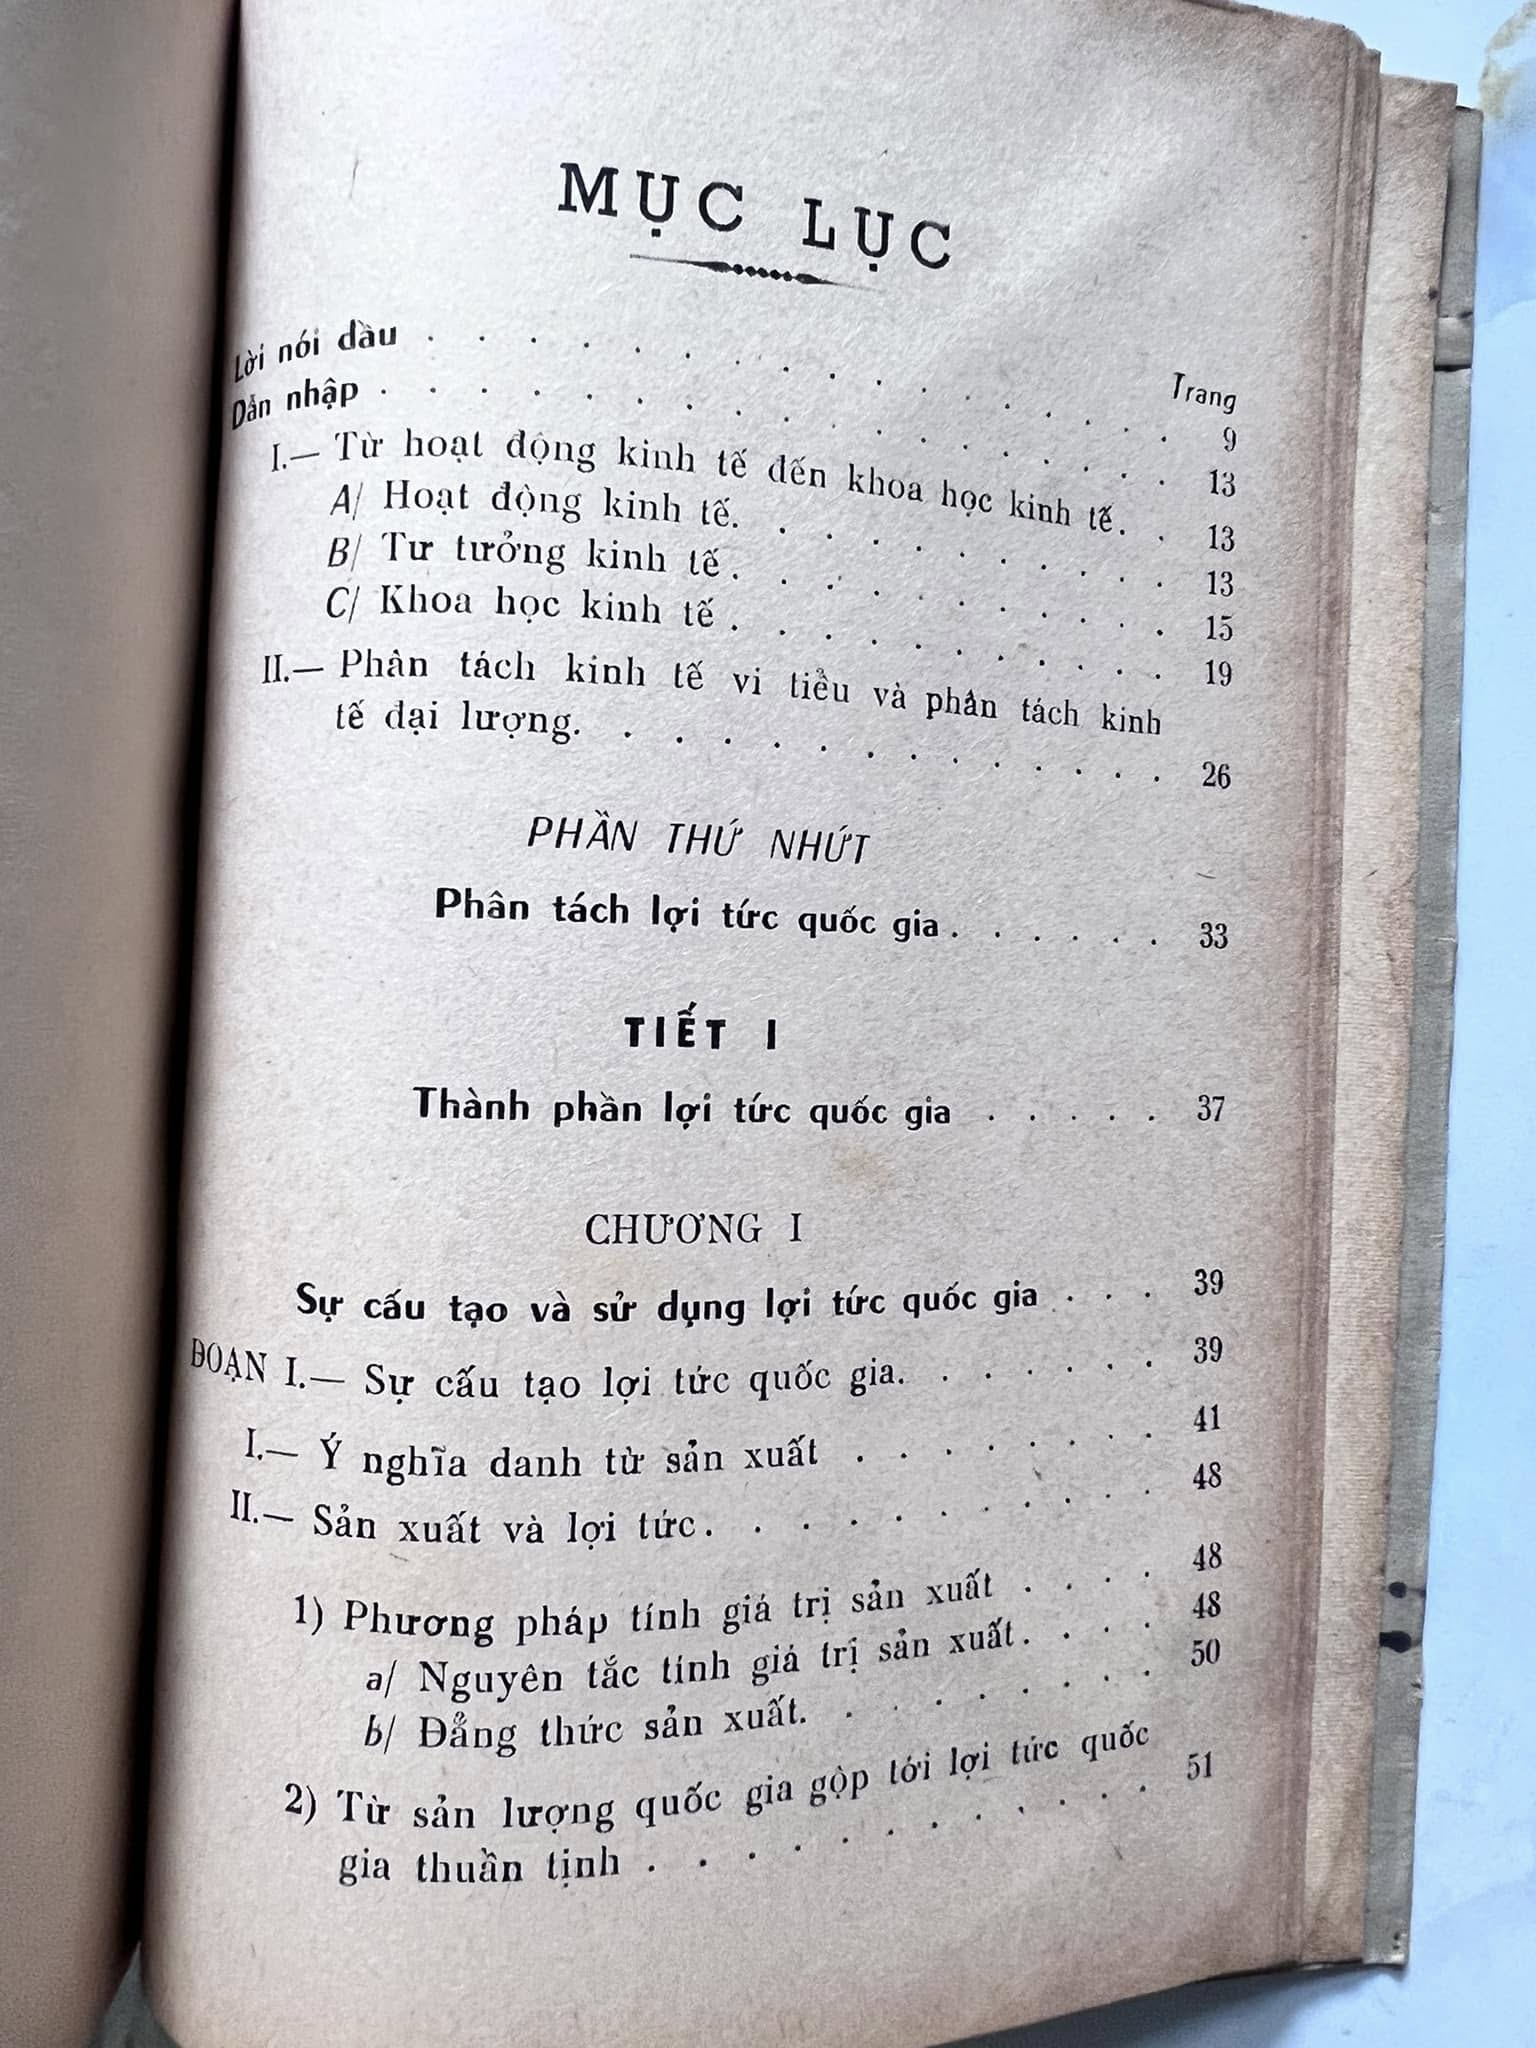 MỤC LỤC
Trang
Lời nói đầu . . . . . . . . . . . . . . . 9
Dẫn nhập . . . . . . . . . . . . . . . . 13
I.— Từ hoạt động kinh tế đến khoa học kinh tế. . 13
A/ Hoạt động kinh tế. . . . . . . . . . 13
B/ Tư tưởng kinh tế . . . . . . . . . . 15
C/ Khoa học kinh tế . . . . . . . . . . 19
II.— Phân tách kinh tế vi tiểu và phân tách kinh
tế đại lượng. . . . . . . . . . . . . 26
PHẦN THỨ NHỨT
Phân tách lợi tức quốc gia . . . . . . 33
TIẾT I
Thành phần lợi tức quốc gia . . . . . 37
CHƯƠNG I
Sự cấu tạo và sử dụng lợi tức quốc gia . . . 39
ĐOẠN I.— Sự cấu tạo lợi tức quốc gia. . . . . . 39
I.— Ý nghĩa danh từ sản xuất . . . . . . . . 41
II.— Sản xuất và lợi tức. . . . . . . . . . 48
1) Phương pháp tính giá trị sản xuất . . . . 48
a/ Nguyên tắc tính giá trị sản xuất. . . . 48
b/ Đẳng thức sản xuất. . . . . . . . . 50
2) Từ sản lượng quốc gia gộp tới lợi tức quốc
gia thuần tịnh . . . . . . . . . . . . 51